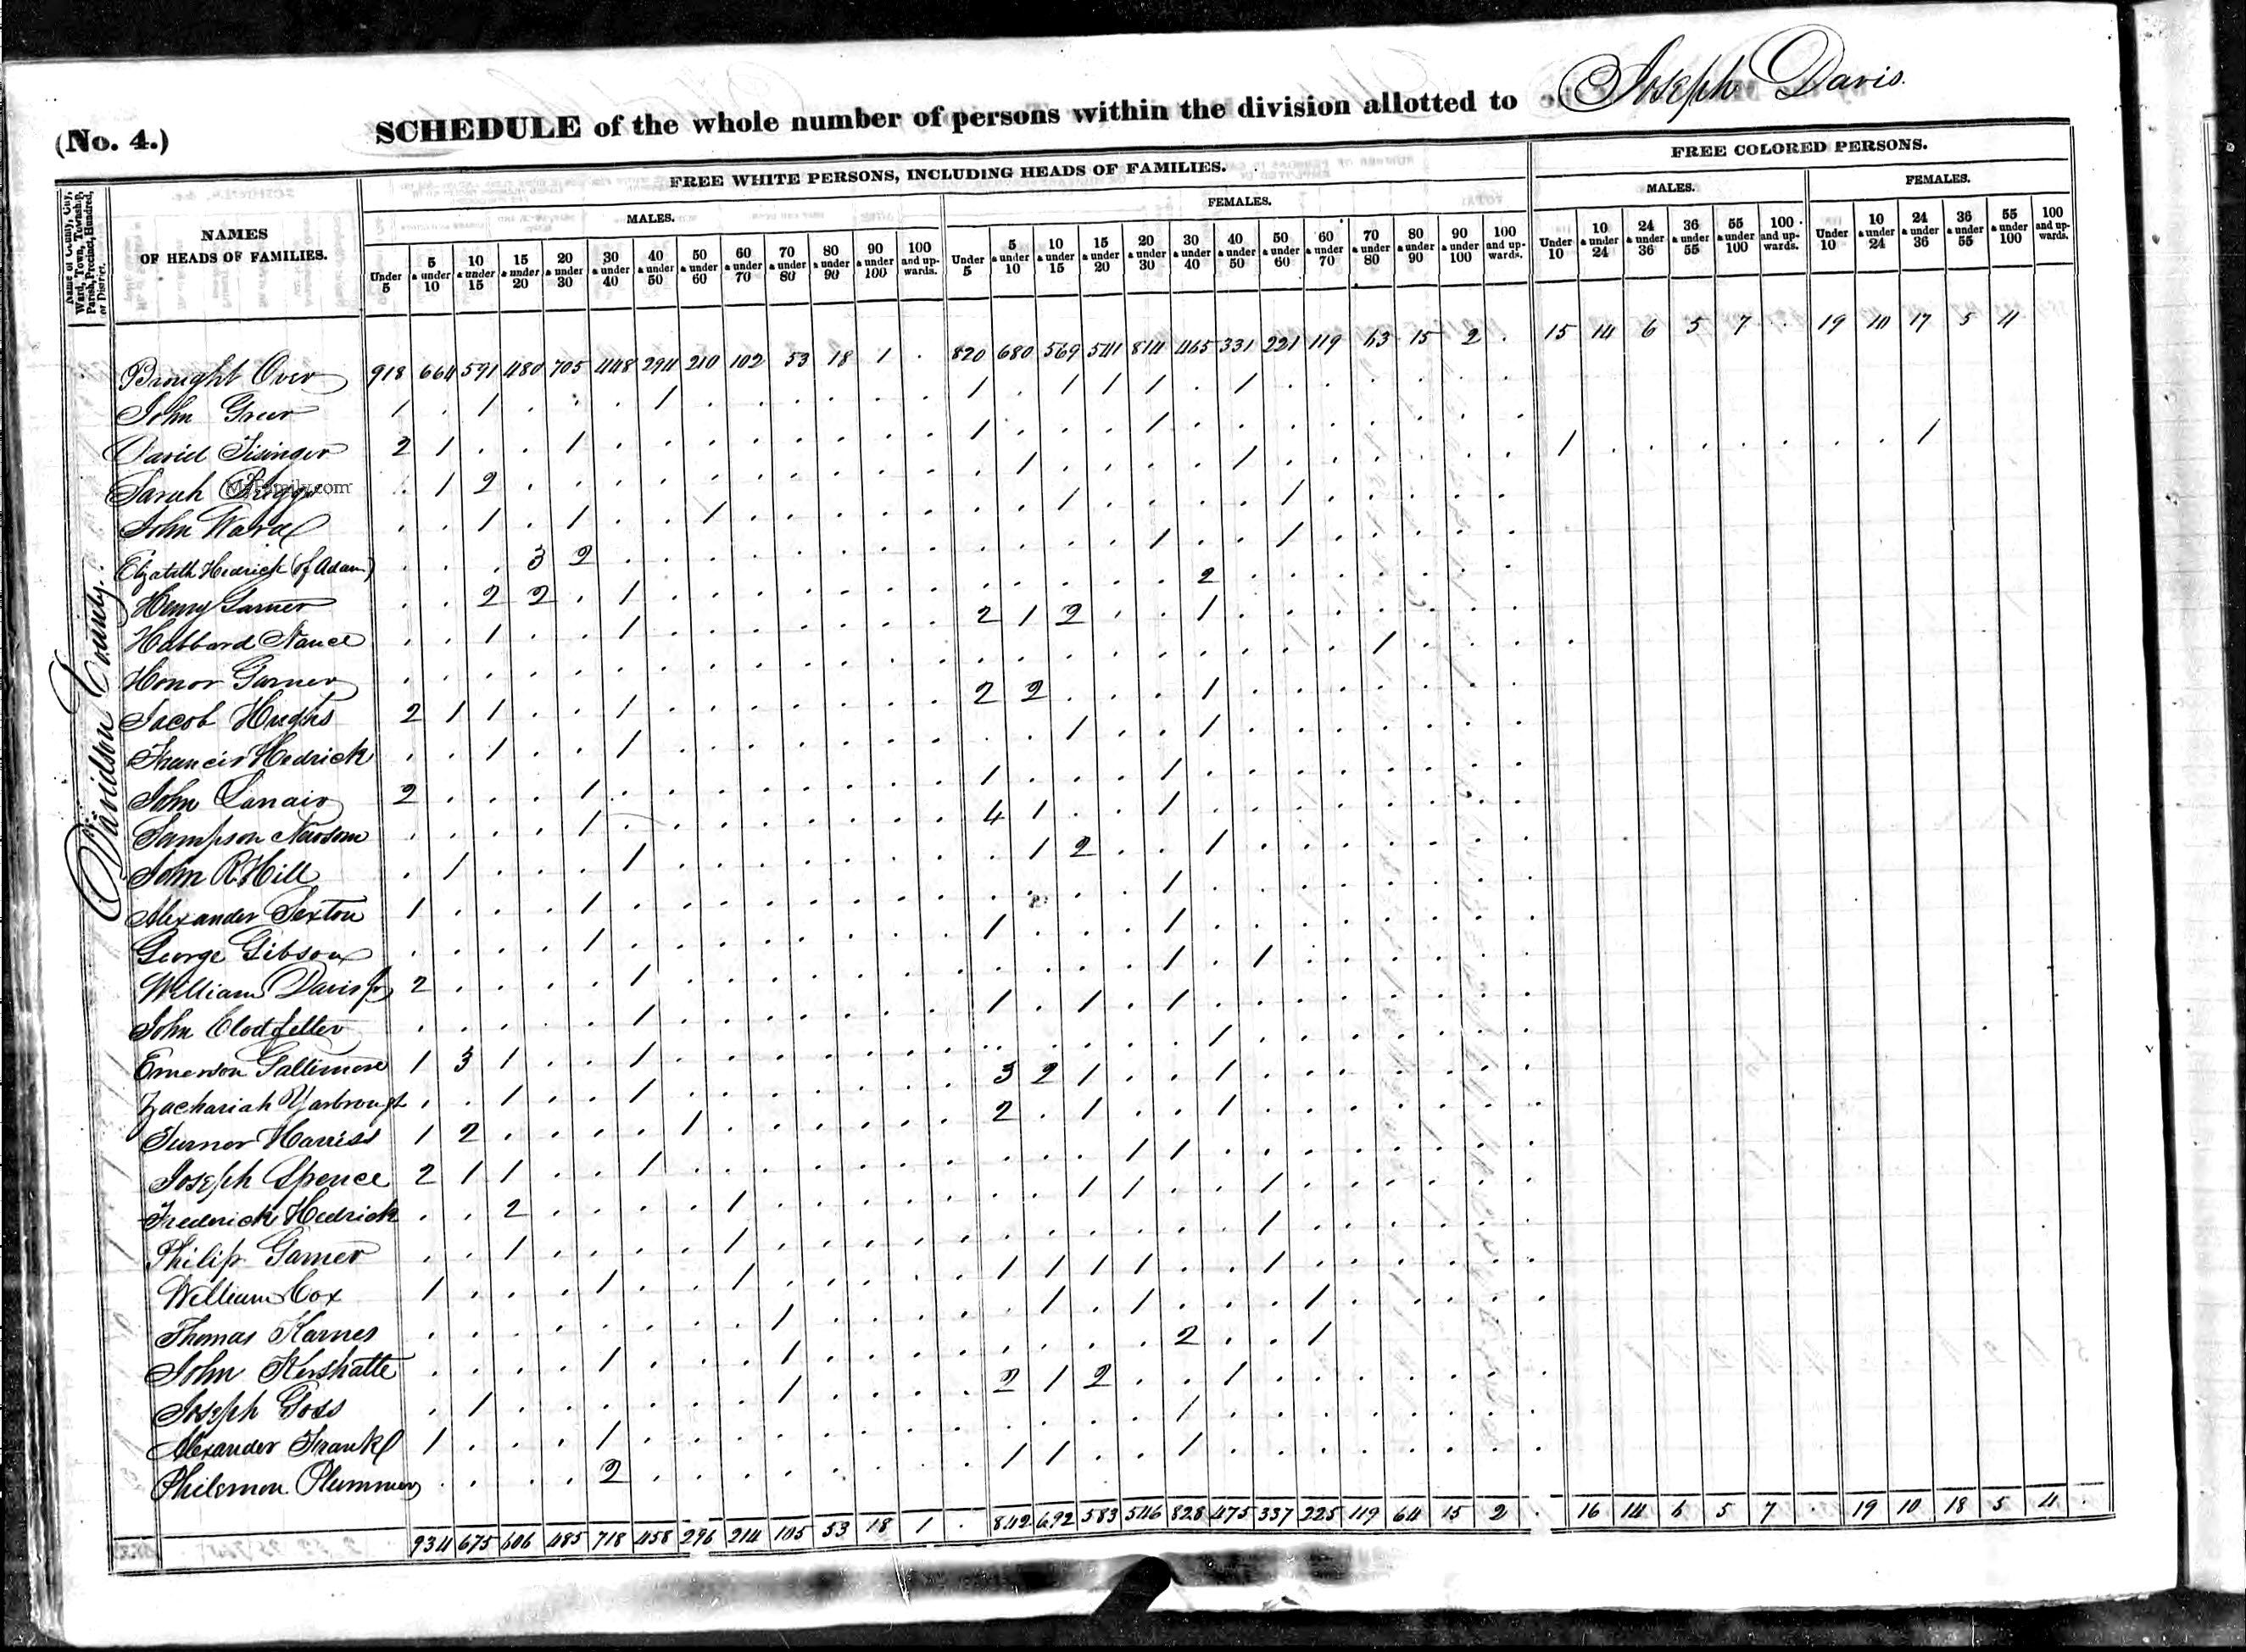 (No. 4.) SCHEDULE of the whole number of persons within the division allotted to Joseph Davis.
Name of County, City, Ward, Town, Township, Parish, Precinct, Hundred, or District.
NAMES OF HEADS OF FAMILIES.
FREE WHITE PERSONS, INCLUDING HEADS OF FAMILIES.
FREE COLORED PERSONS.
MALES. FEMALES. MALES. FEMALES.
Under 5 5 & under 10 10 & under 15 15 & under 20 20 & under 30 30 & under 40 40 & under 50 50 & under 60 60 & under 70 70 & under 80 80 & under 90 90 & under 100 100 and upwards. Under 5 5 & under 10 10 & under 15 15 & under 20 20 & under 30 30 & under 40 40 & under 50 50 & under 60 60 & under 70 70 & under 80 80 & under 90 90 & under 100 100 and upwards. Under 10 10 & under 24 24 & under 36 36 & under 55 55 & under 100 100 and upwards. Under 10 10 & under 24 24 & under 36 36 & under 55 55 & under 100 100 and upwards.
Davidson County
Brought Over 918 664 591 480 705 448 294 210 102 53 18 1 . 820 680 569 541 814 465 331 221 119 63 15 2 . 15 14 6 5 7 . 19 10 17 5 4
John Greer 1 . 1 . . . 1 . . . . . . 1 . 1 1 1 . 1 . . . . . .
David Sisinger 2 1 . . 1 . . . . . . . . 1 . . . 1 . . . . . . . .
Sarah . 1 2 . . . . . . . . . . . 1 . . . . 1 . . . . . . 1 . . . . . . . 1
MyFamily.com
John Ward . . 1 . 1 . . 1 . . . . . . . 1 . . . . 1 . . . . .
Elizabeth Hedrick (of Adam) . . . 3 2 . . . . . . . . . . . . 1 . . 1 . . . . .
Henry Garner . . 2 2 . 1 . . . . . . . . . . . . 2 . . . . . . .
Habbard Nance . . 1 . . 1 . . . . . . . 2 1 2 . . 1 . . . . . . .
Honor Garner . . . . . . . . . . . . . . . . . . . . . . 1 . . .
Jacob Hughs 2 1 1 . . 1 . . . . . . . 2 2 . . . 1 . . . . . . .
Francis Hedrick . . 1 . . 1 . . . . . . . . . 1 . . 1 . . . . . . .
John Lanair 2 . . . 1 . . . . . . . . 1 . . . 1 . . . . . . . .
Sampson Newsom . . . . 1 . . . . . . . . 4 1 . . 1 . . . . . . . .
John R. Hill . 1 . . . 1 . . . . . . . . 1 2 . . 1 . . . . . . .
Alexander Sexton 1 . . . 1 . . . . . . . . . . . . 1 . . . . . . . .
George Gibson . . . . 1 . . . . . . . . 1 . . . 1 . . . . . . . .
William Davis Jr 2 . . . . 1 . . . . . . . . . . . 1 . 1 . . . . . .
John Clodfelter . . . . . 1 . . . . . . . 1 . 1 . 1 . . . . . . . .
Emerson Gallimore 1 3 1 . . 1 . . . . . . . . . . . . 1 . . . . . . .
Zachariah Yarbrough . . 1 . . 1 . . . . . . . 3 2 1 . . 1 . . . . . . .
Turner Harriss 1 2 . . . . 1 . . . . . . 2 . 1 . . 1 . . . . . . .
Joseph Spence 2 1 1 . . 1 . . . . . . . . . . 1 1 . . . . . . . .
Frederick Hedrick . . 2 . . . . 1 . . . . . . . 1 1 . . 1 . . . . . .
Philip Garner . . 1 . . . . 1 . . . . . . . . . . . 1 . . . . . .
William Cox 1 . . . 1 . . 1 . . . . . 1 1 1 1 . . 1 . . . . . .
Thomas Karnes . . . . . . . . 1 . . . . . 1 . 1 . . . 1 . . . . .
John Kershatte . . . . 1 . . . 1 . . . . . . . . 2 . . 1 . . . . .
Joseph Goss . 1 . . . . . . 1 . . . . 2 1 2 . . 1 . . . . . . .
Alexander Frank 1 . . . 1 . . . . . . . . . . . . 1 . . . . . . . .
Philemon Plummer . . . . 2 . . . . . . . . 1 1 . . 1 . . . . . . . .
934 675 606 485 718 458 296 214 105 53 18 1 . 842 692 583 546 828 475 337 225 119 64 15 2 . 16 14 6 5 7 . 19 10 18 5 4 .